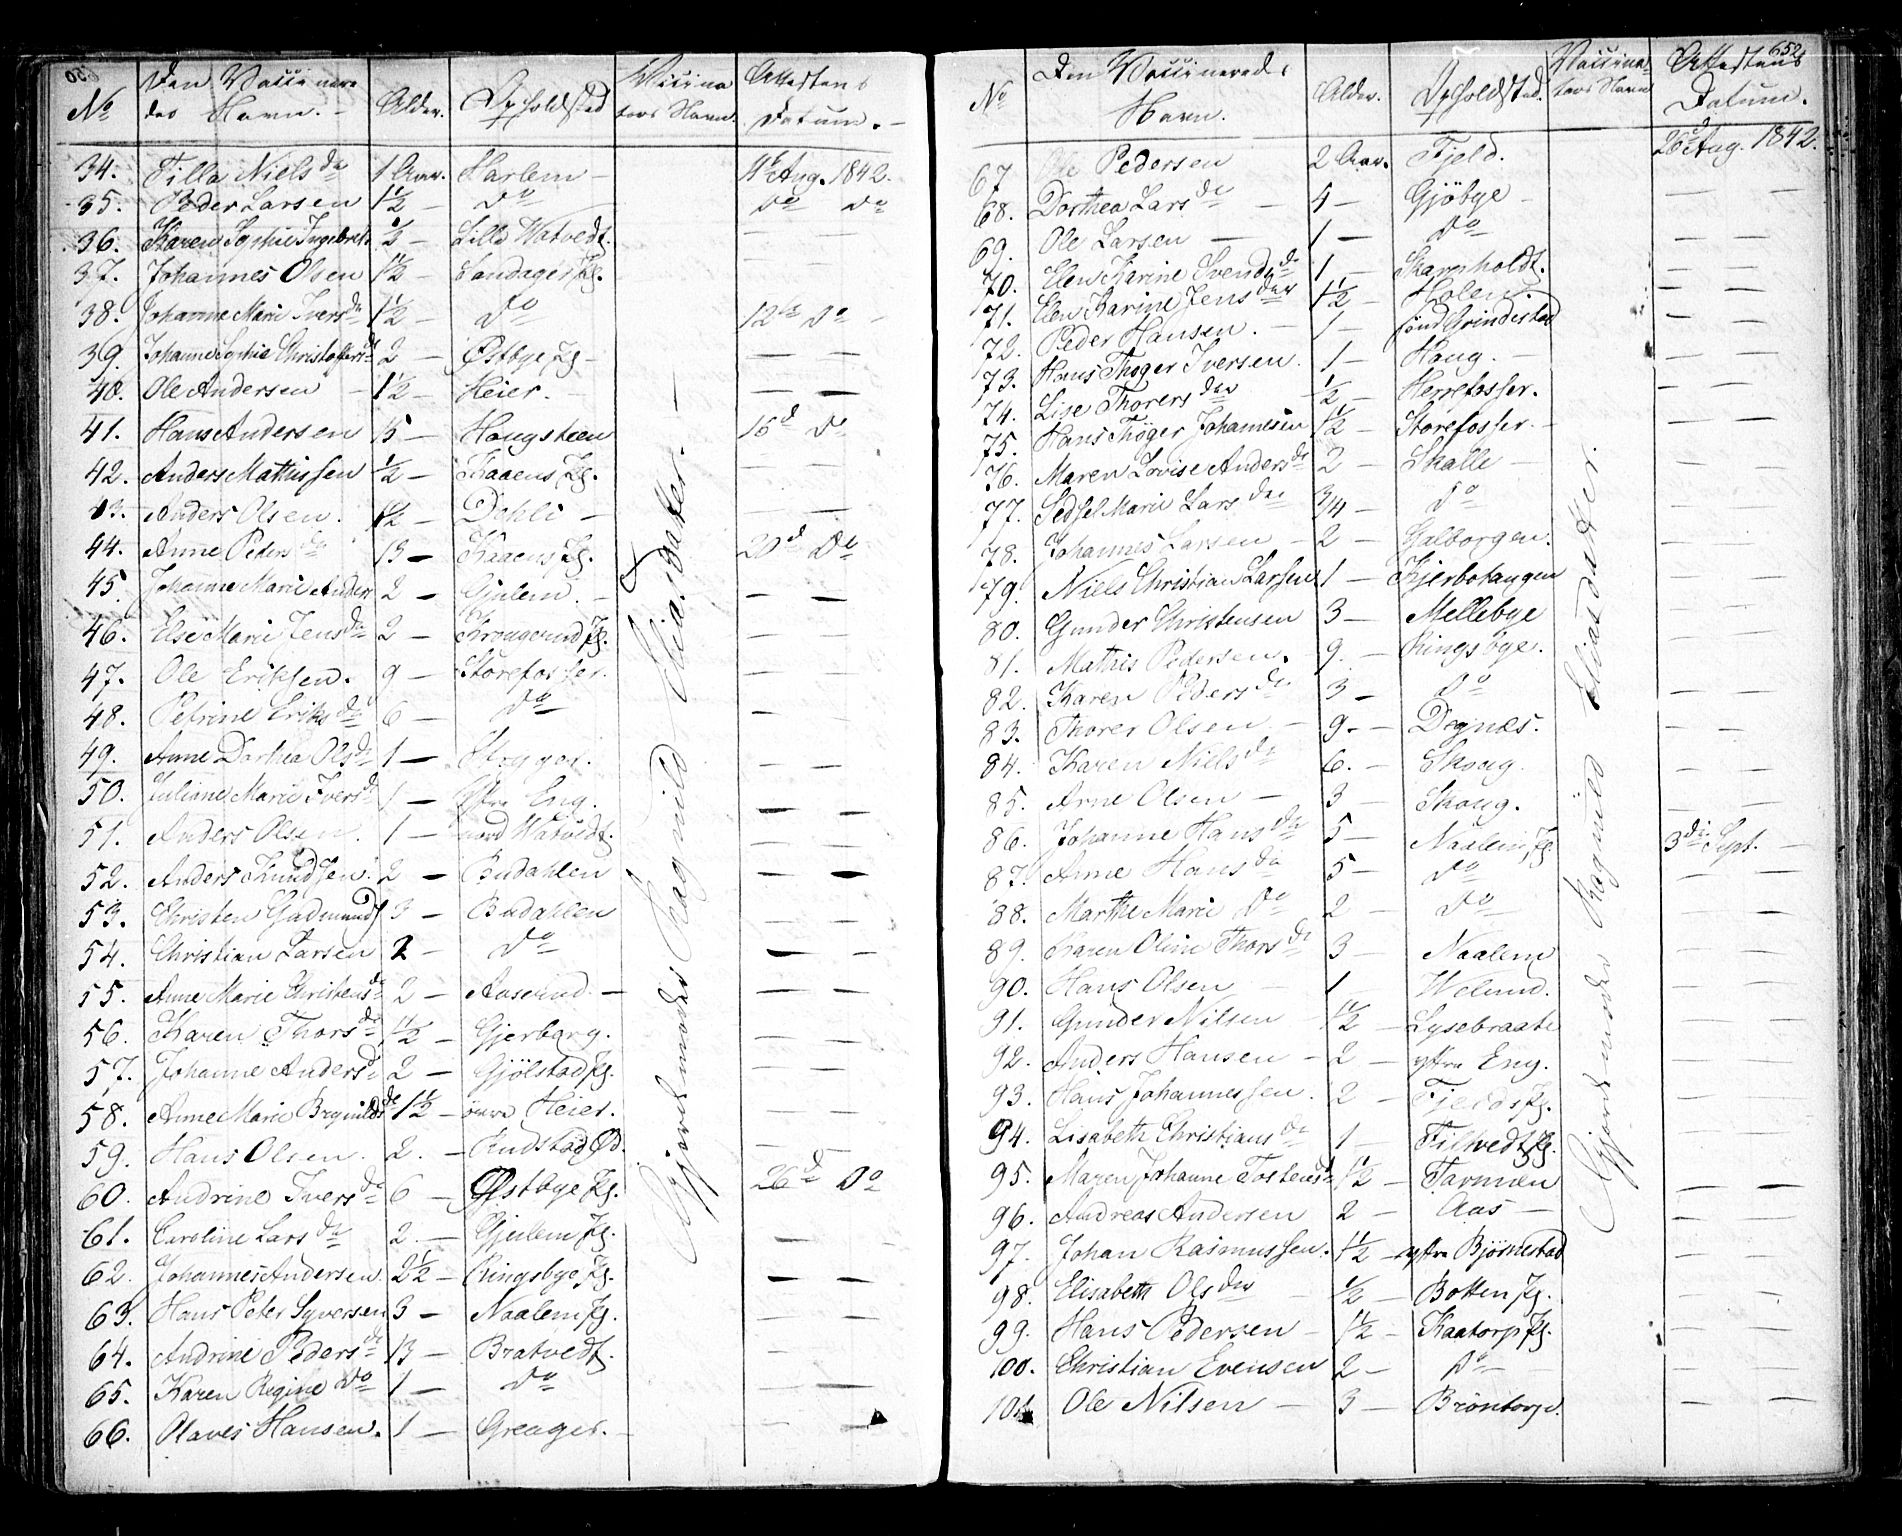 650
No Den Vaccinere- Alder. Opholdsted Vaccina- Attestens
des Navn. - tors Navn. Datum. -
34. Tilla Nielsdr 1 Aar. Harlem - 11te Aug. 1842.
35. Peder Larsen 1½ - Do Do Do
36. Karen Sophie Ingebrets ½ - Lille Watvedt. — —
37. Johannes Olsen 1½ - Sandager Eg. — —
38. Johanne Marie Iversdr 1½ - Do 12te Do -
39. Johanne Sophie Christoffersdr 2 - Østbye Eg - — —
40. Ole Andersen - 1½ - Heier. - — —
41. Hans Andersen 15 - Hougsteen 16d Do
42. Anders Mathissen ½ - Kaaens Eg. — —
43. Anders Olsen. 1½ - Dahli - — —
44. Anne Pedersdr 13 - Kaaens Eg. 20d Do
45. Johanne Marie Anders 2 - Gjulem. - — —
46. Else Marie Jensdr 2 - Krogsund Eg. — —
47. Ole Eriksen. 9 - Storefosser. — —
48. Petrine Eriksdr 6 - Do — —
49. Anne Dorthea Olsdr 1 - — —
50. Juliane Marie Iversdr 1 - Østre Eng. — —
51. Anders Olsen. 1 - nord Watvedt. — —
52. Anders Knudsen. 2 - Budahlen — —
53. Christen Gudmunds 3 - Budahlen — —
54. Christian Larsen 2 - Do — —
55. Anne Marie Christensdr 2 - Aaserud. - — —
56. Karen Thorsdr 1½ - Gjerberg. — —
57. Johanne Andersdr 2 - Gjölstad Eg. — —
58. Anne Marie Brynildsdr 1½ - övre Heier. — —
59. Hans Olsen. 2. - Rudstad Ød. — —
60. Andrine Iversdr 6 - Østbye Eg. 26d Do
61. Caroline Larsdr 2. - Gjeilem Eg. — —
62. Johannes Andersen 2½ - Ringsbye Eg. — —
63. Hans Peter Syversen 3 - Naalem Eg. — —
64. Andrine Pedersdr 13 - Bratvedt. — —
65. Karen Regine Do 1 - Do — —
66. Olaves Hansen. 1 - Greager. - — —
Gjordemoder Ragnild Eliasdatter. —
652
No Den Vaccinerede Alder. Opholdsted. Vaccina- Attestens
Navn. tors Navn Datum.
67 Ole Pedersen 2 Aar. Fjeld. 26d Aug. 1842.
68. Dorthea Larsdr - 4 - Gjöbye - — —
69. Ole Larsen - 1 - Do — —
70. Elen Karine Svendsdr 1 - Skarnholdt. — —
71. Elen Karine Jensdatter 1½ - Holene. — —
72. Peder Hansen. - 1 - sönd Grindestad — —
73. Hans Thøger Iversen. 1 - Haug. - — —
74. Lise Thorersdatter ½ - Herrefosser. — —
75. Hans Thøger Johannesen 1½ - Storefosser. - — —
76. Maren Lovise Andersdr 2 - Skalle - — —
77. Sedsel Marie Larsdatter ¾ - Do — —
78. Johannes Larsen - 2 - Galborgen. — —
79. Niels Christian Larsen 1 - Kjerbotangen — —
80. Gunder Christensen 3 - Mellebye — —
81. Mathis Pedersen. 9. - Ringsbye. — —
82. Karen Pedersdr 3 - Do — —
83. Thorer Olsen - 9. - Degnæs. — —
84. Karen Nielsdr 6. - Skoug. — —
85. Arne Olsen - 3 - Skoug. — —
86. Johanne Hansdr 5 - Naalem Eg 3die Sept. -
87. Anne Hansdr 5 - Do — —
88. Marthe Marie Do 2 - Do — —
89. Karen Oline Thorsdr 3 - Naalem — —
90. Hans Olsen - 1 Welund. — —
91. Gunder Nilsen - 1½ - Lysebraate — —
92. Anders Hansen - 2 - østre Eng. — —
93. Hans Johannessen. 2 - Fjelds Eg. — —
94. Lisabeth Christiansdr 1 - Filtvedt Eg. — —
95. Maren Johanne Tostensdr 1½ - Tormøen — —
96. Andreas Andersen 2 - Aas - — —
97. Johan Rasmussen. 1½ - østre Bjørnestad — —
98. Elisabeth Olsdatter - ½ - Botten Eg. — —
99. Hans Pedersen - 1½ - Kaatorp Eg. — —
100. Christian Evensen 2 - Do — —
101. Ole Nilsen - 3 - Bröntorp. — —
Gjordemoder Ragnild Eliasdatter.